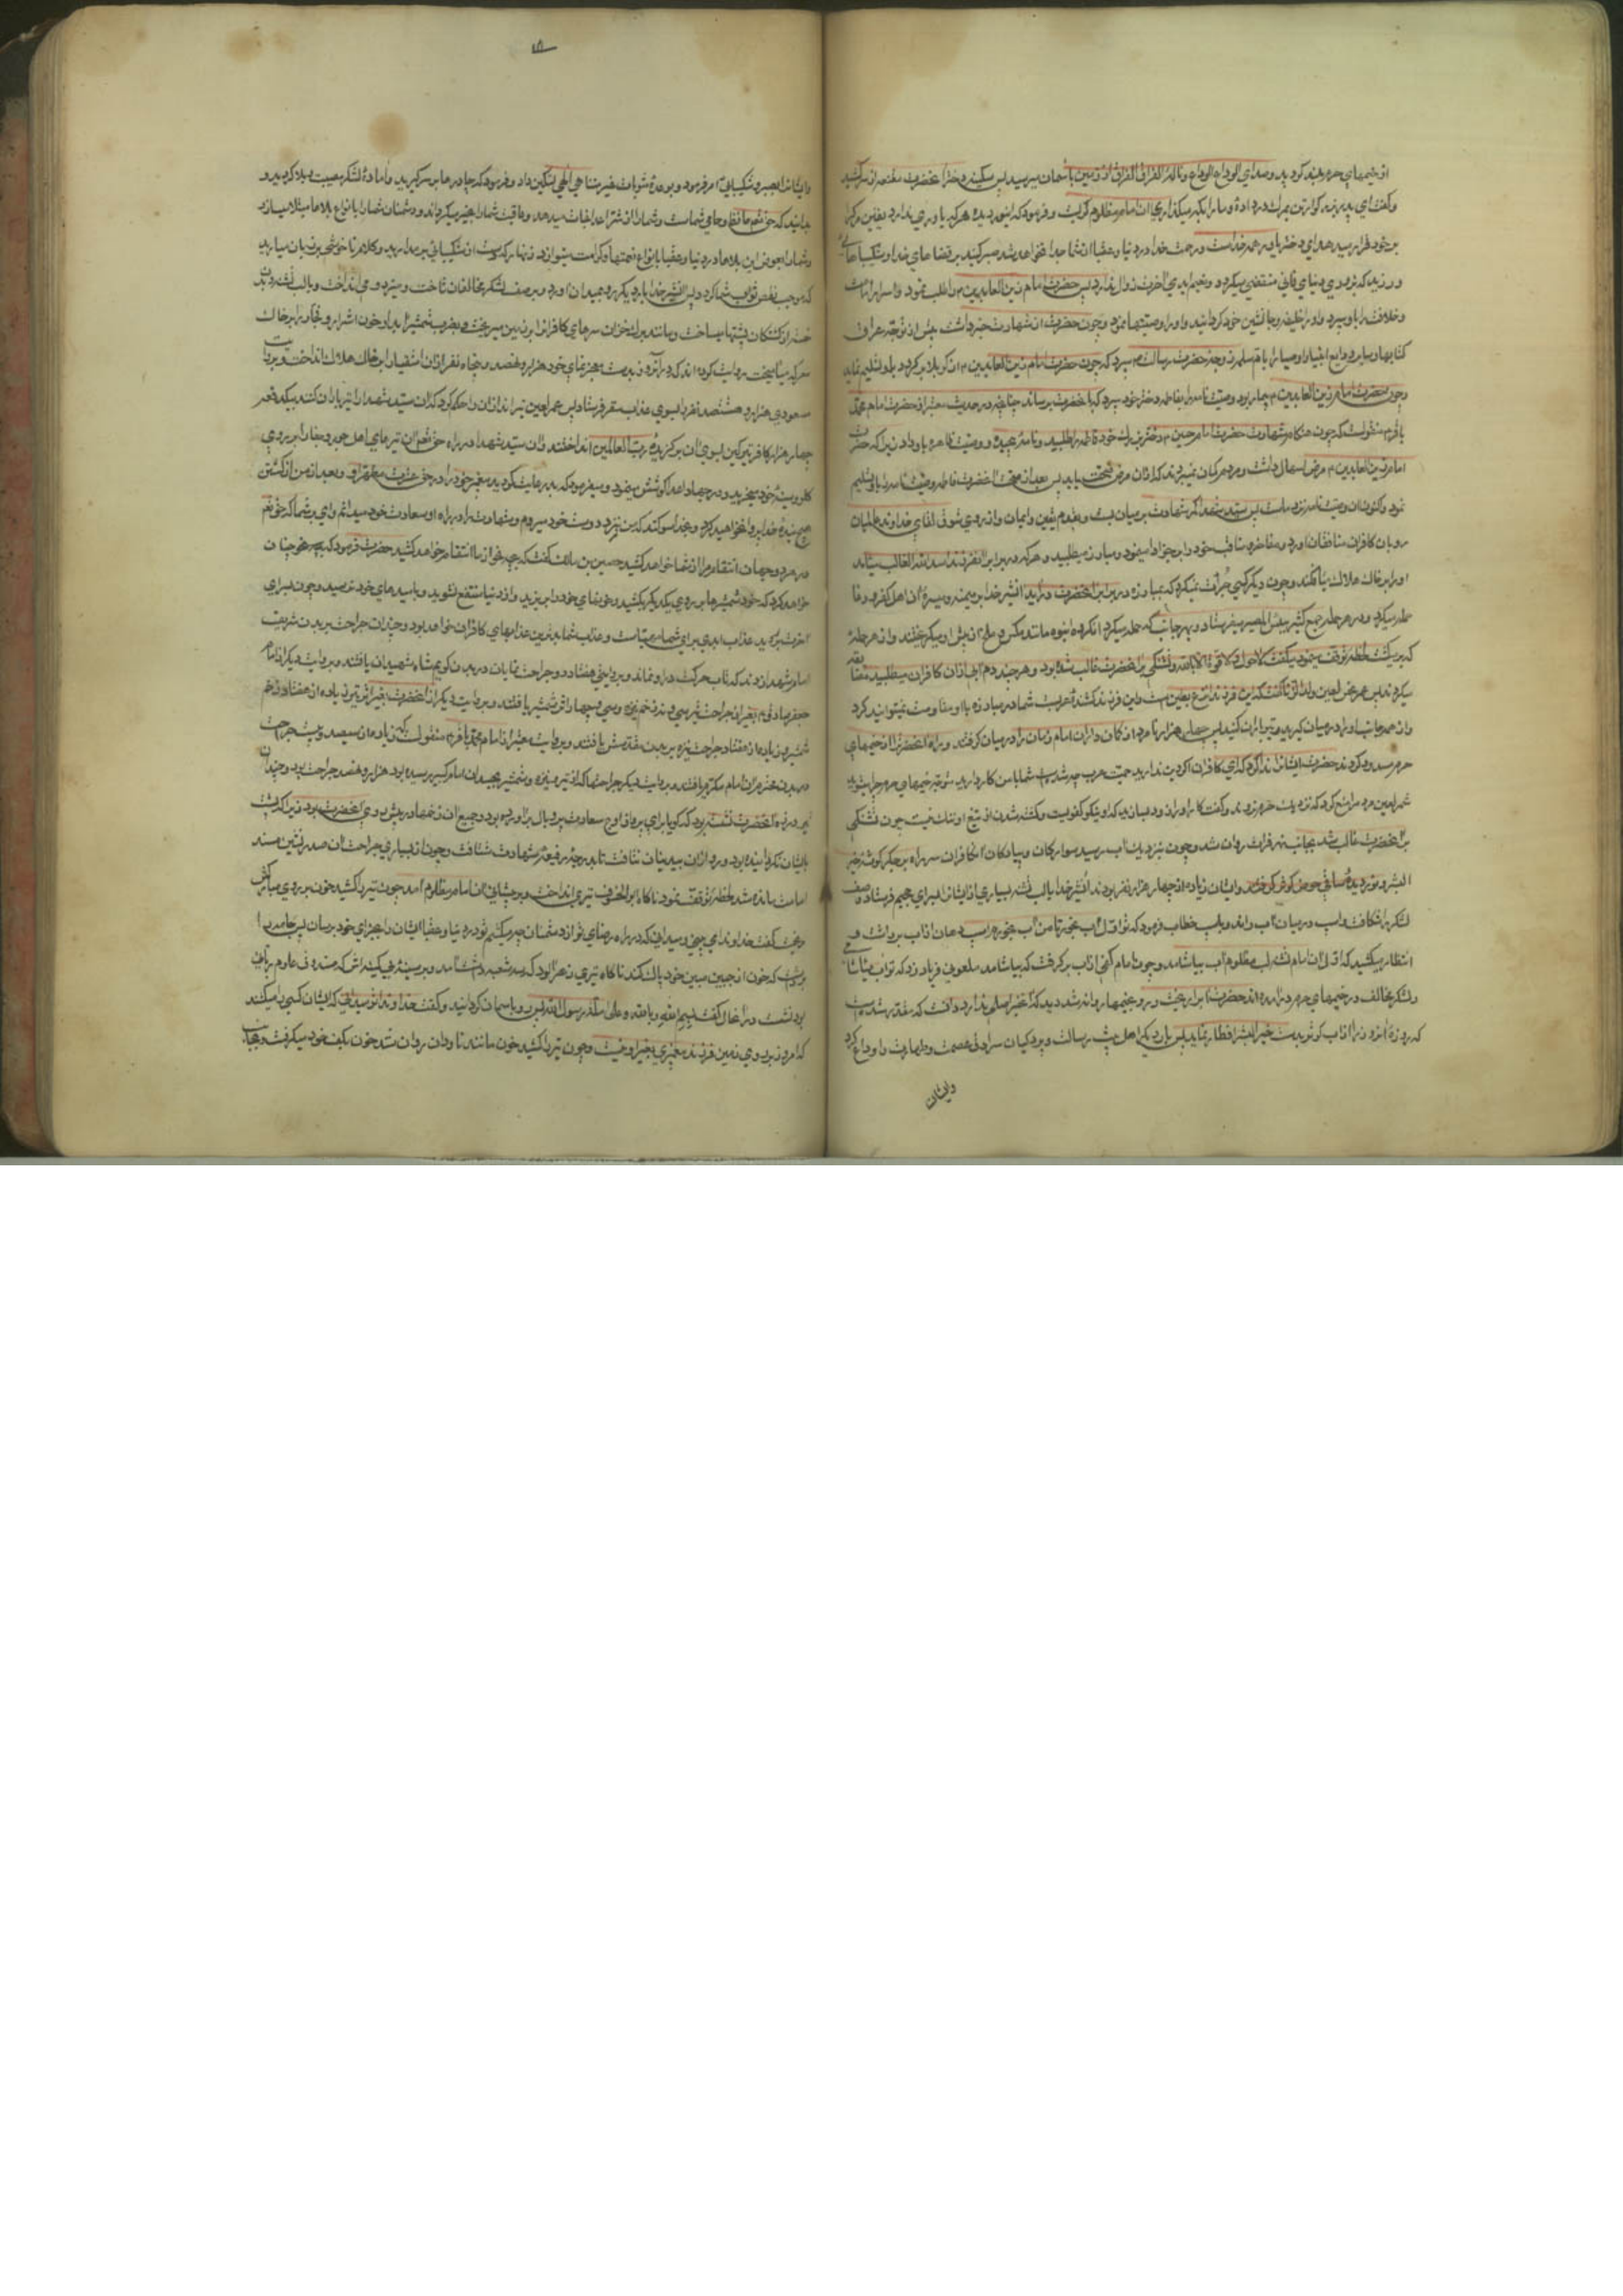 از خیمهای حرم بلند کردید و صدای الوداع الوداع و ناله الفراق الفراق از زمین باسمان میرسید پس سکینه دختر آنحضرت مقنعه از سر کشید
و گفت ای پدر بزرگوار تن بمرک در داده و ما را بکه میکذاری آن امام مظلوم کریست و فرمود که ای نور دیده هر که یاوری ندارد یقین مرک را
بر خود قرار میدهد ای دختر یاور همه خداست و رحمت خدا در دنیا و عقبا از شما جدا نخواهد شد صبر کنید بر قضاهای خدا و شکیبائی
ورزید که بزودی دنیای فانی منقضی میکردد و نعیم ابدی آخرت زوال ندارد پس حضرت امام زین العابدین را طلب نمود و اسرار امامت
و خلافت را باو سپرد و او را خلیفه و جانشین خود کردانید و او را وصیتها نمود و چون حضرت از شهادت خود خبر داشت پیش از توجه عراق
کتابها و سایر ودایع انبیا و اوصیا را بام سلمه زوجه حضرت رسالت سپرد که چون حضرت امام زین العابدین از کربلا بر کردد باو تسلیم نماید
و چون حضرت امام زین العابدین بیمار بود وصیت نامه را بفاطمه دختر خود سپرد که بآنحضرت برساند چنانچه در حدیث معتبر از حضرت امام محمد
باقر منقولست که چون هنکام شهادت حضرت امام حسین شد دختر بزرک خود فاطمه را طلبید و نامه پیچیده و وصیت ظاهره باو داد زیرا که حضرت
امام زین العابدین مرض اسهال داشت و مردم کمان نمیبردند که از آن مرض صحت یابد پس بعد از صحت آنحضرت فاطمه وصیت نامه را باو تسلیم
نمود و اکنون آن وصیت نامه نزد ماست پس سید شهدا کمر شهادت بر میان بست و بقدم یقین و ایمان و از روی شوق لقای خداوند عالمیان
رو بآن کافران منافقان آورد و مفاخر و مناقب ستوده را بر جز ادا مینمود و مبارز میطلبید و هر که در برابر آن فرزند اسد الله الغالب میآمد
او را بر خاک هلاک میافکند و چون دیکر کسی جرأت نمیکرد که بمبارزه در برابر آنحضرت در آید آن شیر خدا بر میمنه و میسره آن اهل کفر و دغا
حمله میکرد و در هر حمله جمع کثیر ببئس المصیر میفرستاد و بهر جانب که حمله میکرد آن کروه انبوه مانند مکس و ملخ از پیش او میکریختند و از هر حمله
که بر میکشت لحظه توقف مینمود میکفت لا حول و لا قوة الا بالله و تشنکی بر آنحضرت غالب شده بود و هر چند دم آبی از آن کافران میطلبید مضایقه
میکردند پس عمر نحس لعین ولد الزنا کفت که این فرزند انزع بطین است و این فرزند کشنده عربست شما در مبارزه با او مقاومت نمیتوانید کرد
و از همه جانب او را در میان کیرید و تیر باران کنید پس چهار هزار نامرد از کمانداران امام زمان را در میان کرفتند و راه آنحضرت را از خیمهای
حرم مسدود کردند حضرت ایشان را ندا کرد که ای کافران اکر دین ندارید حمیت عرب چه شد شما با من کار دارید متوجه خیمهای حرم چرا میشوید
شمر لعین مردم را منع کرد که نزدیک حرم نروند و کفت کار او را زود بسازید که او نیکو کفویست و کشته شدن از تیغ او ننک نیست چون تشنکی
بر آنحضرت غالب شد بجانب نهر فرات روان شد و چون نزدیک آب رسید سواران و پیادکان آن کافران سر راه بر جکر کوشه خیر
البشر و نور دیده ساقی حوض کوثر کرفتند و ایشان زیاده از چهار هزار نفر بودند آن شیر خدا با لب تشنه بسیاری از ایشان را بسرای جحیم فرستاد و صف
لشکر را شکافت و اسب در میان آب راند و باسب خطاب فرمود که تو اول آب بخور تا من آب بخورم اسب دهان از آب برداشت و
انتظار میکشید که اول آن امام تشنه لب مظلوم آب بیاشامد و چون امام کفی از آب بر کرفت که بیاشامد ملعونی فریاد زد که تو آب میآشامی
و لشکر مخالف در خیمهای حرم در آمده اند حضرت آبرا ریخت و رو بخیمها روانه شد دید که آن خبر اصلی ندارد دانست که مقدر شده است
که روزه آنروز را از آب کوثر بدست خیر البشر افطار نماید پس بار دیکر اهل بیت رسالت و پردکیان سرادق عصمت و طهارت را وداع کرد
وایشان
وایشان را بصبر و شکیبائی امر فرمود و بوعده مثوبات غیر متناهی الهی تسکین داد و فرمود که چادرها بر سر کیرید و آماده لشکر مصیبت و بلا کردید و
بدانید که حق تعالی حافظ و حامی شماست و شما را از شر اعدا نجات میدهد و عاقبت شما را بخیر میکرداند و دشمنان شما را بانواع بلاها مبتلا میسازد
و شما را بعوض این بلاها در دنیا و عقبا بانواع نعمتها و کرامت مینوازد زنهار که دست از شکیبائی بر مدارید و کلام ناخوشی بر زبان میارید
که موجب نقص ثواب شما کردد پس آن شیر خدا بار دیکر رو بمیدان آورد و بر صف لشکر مخالفان تاخت و میزد و می انداخت و با لب تشنه و بدن
خسته از کشتکان پشتها میساخت و مانند برک خزان سرهای کافران را بر زمین میریخت و بضرب شمشیر آبدار خون اشرار و فجار را بر خاک
معرکه میآمیخت روایت کرده اند که در آنروز بدست معجز نمای خود هزار و نهصد و پنجاه نفر از آن اشقیا را بر خاک هلاک انداخت و بروایت
مسعودی هزار و هشتصد نفر را بسوی عذاب سقر فرستاد پس عمر لعین تیر اندازان را حکم کرد که آن سید شهدا را تیر باران کنند بیکدفعه
چهار هزار کافر تیر کین بسوی آن بر کزیده رب العالمین انداختند و آن سید شهدا در راه حق تعالی آن تیرهای اهل جور و جفا را بر روی
کلو و سینه خود میخرید و در جهاد اعدا کوشش مینمود و میفرمود که بد رعایت کردید پیغمبر خود را در حق عترت مطهر او و بعد از من از کشتن
هیچ بنده خدا پروا نخواهید کرد و بخدا سوکند که من نزد دوست خود میروم و شهادت را در راه او سعادت خود میدانم وای بر شما که حق تعالی
در هر دو جهان انتقام مرا از شما خواهد کشید حصین بن مالک کفت که بچه نحو از ما انتقام خواهد کشید حضرت فرمود که بنحوی چنان
خواهد کرد که خود شمشیرها بر روی یکدیکر بکشید و خونهای خود را بریزید و از دنیا منتفع نشوید و بامیدهای خود نرسید و چون بسرای
آخرت بروید عذاب ابدی برای شما مهیاست و عذاب شما بدترین عذابهای کافران خواهد بود و چندان جراحت بر بدن شریف
امام شهدا زدند که تاب حرکت در او نماند و بروایتی هفتاد و دو جراحت نمایان در بدن کریم شاه شهیدان یافتند و بروایت دیکر از امام
جعفر صادق بغیر از جراحت تیر سی و سه زخم نیزه و سی و چهار اثر شمشیر یافتند و بروایت دیکر از آنحضرت بغیر از تیر زیاده از هفتاد زخم
شمشیر و زیاده از هفتاد جراحت نیزه بر بدن مقدسش یافتند و بروایت معتبر از امام محمد باقر منقولست که زیاده از سیصد و بیست جراحت
در بدن محترم آن امام مکرم یافتند و بروایت دیکر جراحتها که از تیر و نیزه و شمشیر بجسد آن امام کبیر رسیده بود هزار و نهصد جراحت بود و چندان
تیر در زره آنحضرت نشسته بود که کویا برای پرواز اوج سعادت پر و بال بر آورده بود و جمیع آن زخمها در پیش روی آنحضرت بود زیرا که پشت
بایشان نکردانیده بود و رو از آن بیدینان نتافت تا بدرجه رفیعه شهادت شتافت و چون از بسیاری جراحت آن صدر نشین مسند
امامت مانده شد لحظه توقف نمود ناکاه ابو الحتوف تیری انداخت و بر پیشانی آن امام مظلوم آمد چون تیر را کشید خون بر روی مبارکش
ریخت کفت خداوندا می بینی و میدانی که در راه رضای تو از دشمنان چه میکشم تو در دنیا و عقبا ایشان را بجزای خود برسان پس جامه را
برداشت که خون از جبین مبین خود پاک کند ناکاه تیری زهر آلود که سه شعبه داشت آمد و بر سینه بی کینه اش که صندوق علوم ربانی
بود نشست در آنحال کفت بسم الله و بالله و علی ملة رسول الله پس رو باسمان کردانید و کفت خداوندا تو میدانی که ایشان کسی را میکشند
که امروز بر روی زمین فرزند پیغمبری بغیر او نیست و چون تیر را کشید خون مانند ناودان روان شد خون بکف خود میکرفت و بجانب